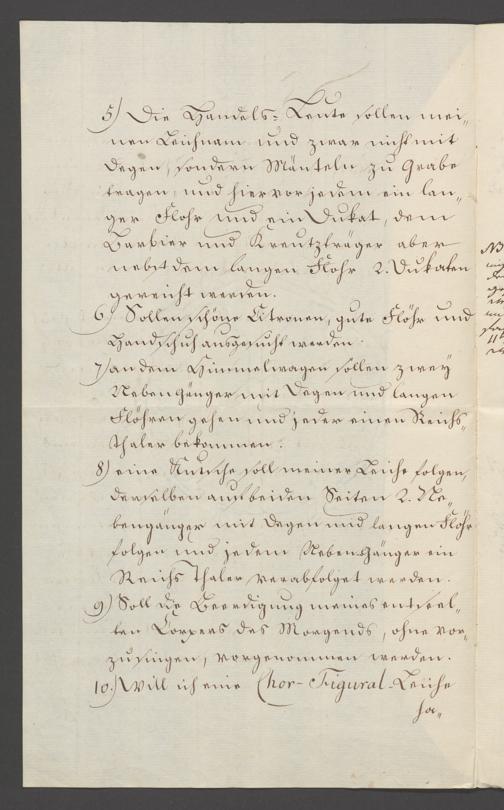 5) Die Handels-Leute sollen mei-
nen Leichnam und zwar nicht mit
Degen, sondern Mänteln zu Grabe
tragen, und hiervor jedem ein lan-
ger Flohr und ein Dukat, dem
Barbier und Kreutzträger aber
nebst dem langen Flohr 2. Dukaten
gereicht werden.
6) Sollen schöne Citronen, gute Flöhr und
Handschuh ausgesucht werden.
7) an dem Himmelwagen sollen zwey
Nebengänger mit Degen und langen
Flöhren gehen und jeder einen Reichs-
Thaler bekommen.
8) eine Kutsche soll meiner Leiche folgen,
derselben auf beiden Seiten 2. Ne-
bengänger mit Degen und langen Flöhr
folgen und jedem Nebengänger ein
Reichs Thaler verabfolget werden.
9) Soll die Beerdigung meines entseel-
ten Corpers des Morgends, ohne vor-
zusingen, vorgenommen werden.
10.) Will ich eine Chor-Figural-Leiche
ha-
NB